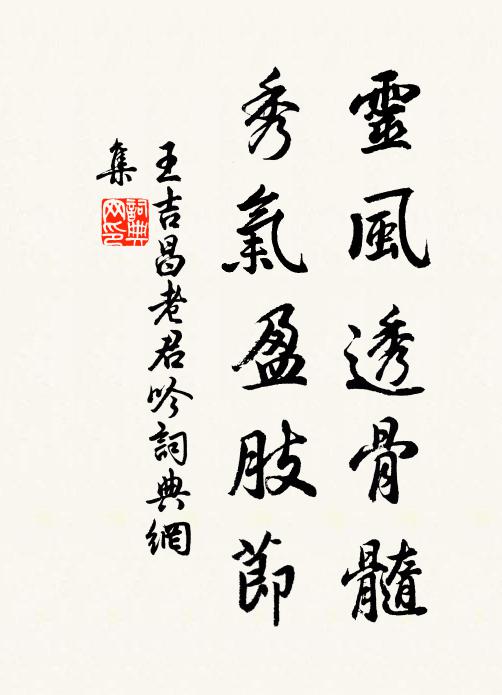 靈風透骨髓
秀氣盈肢節
王吉昌老君吟詞典網
集
詞典
网印